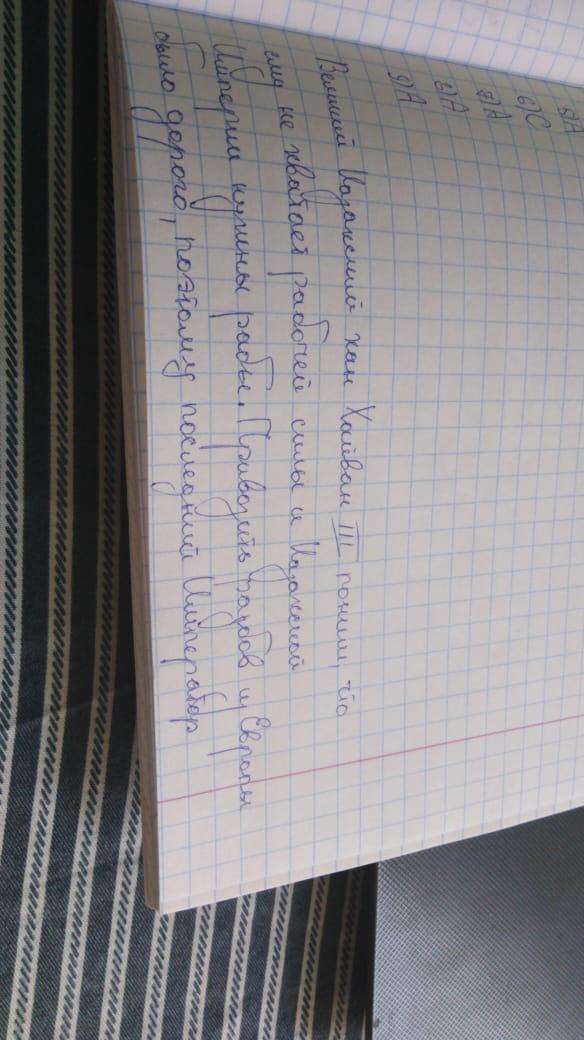 5)А
6)С
7)А
8)А
9)А
Великий Казахский хан Хайван III понял, что
ему не хватает рабочей силы и Казахской
Империи нужны рабы. Привозить рабов из Европы
было дорого, поэтому последний Император